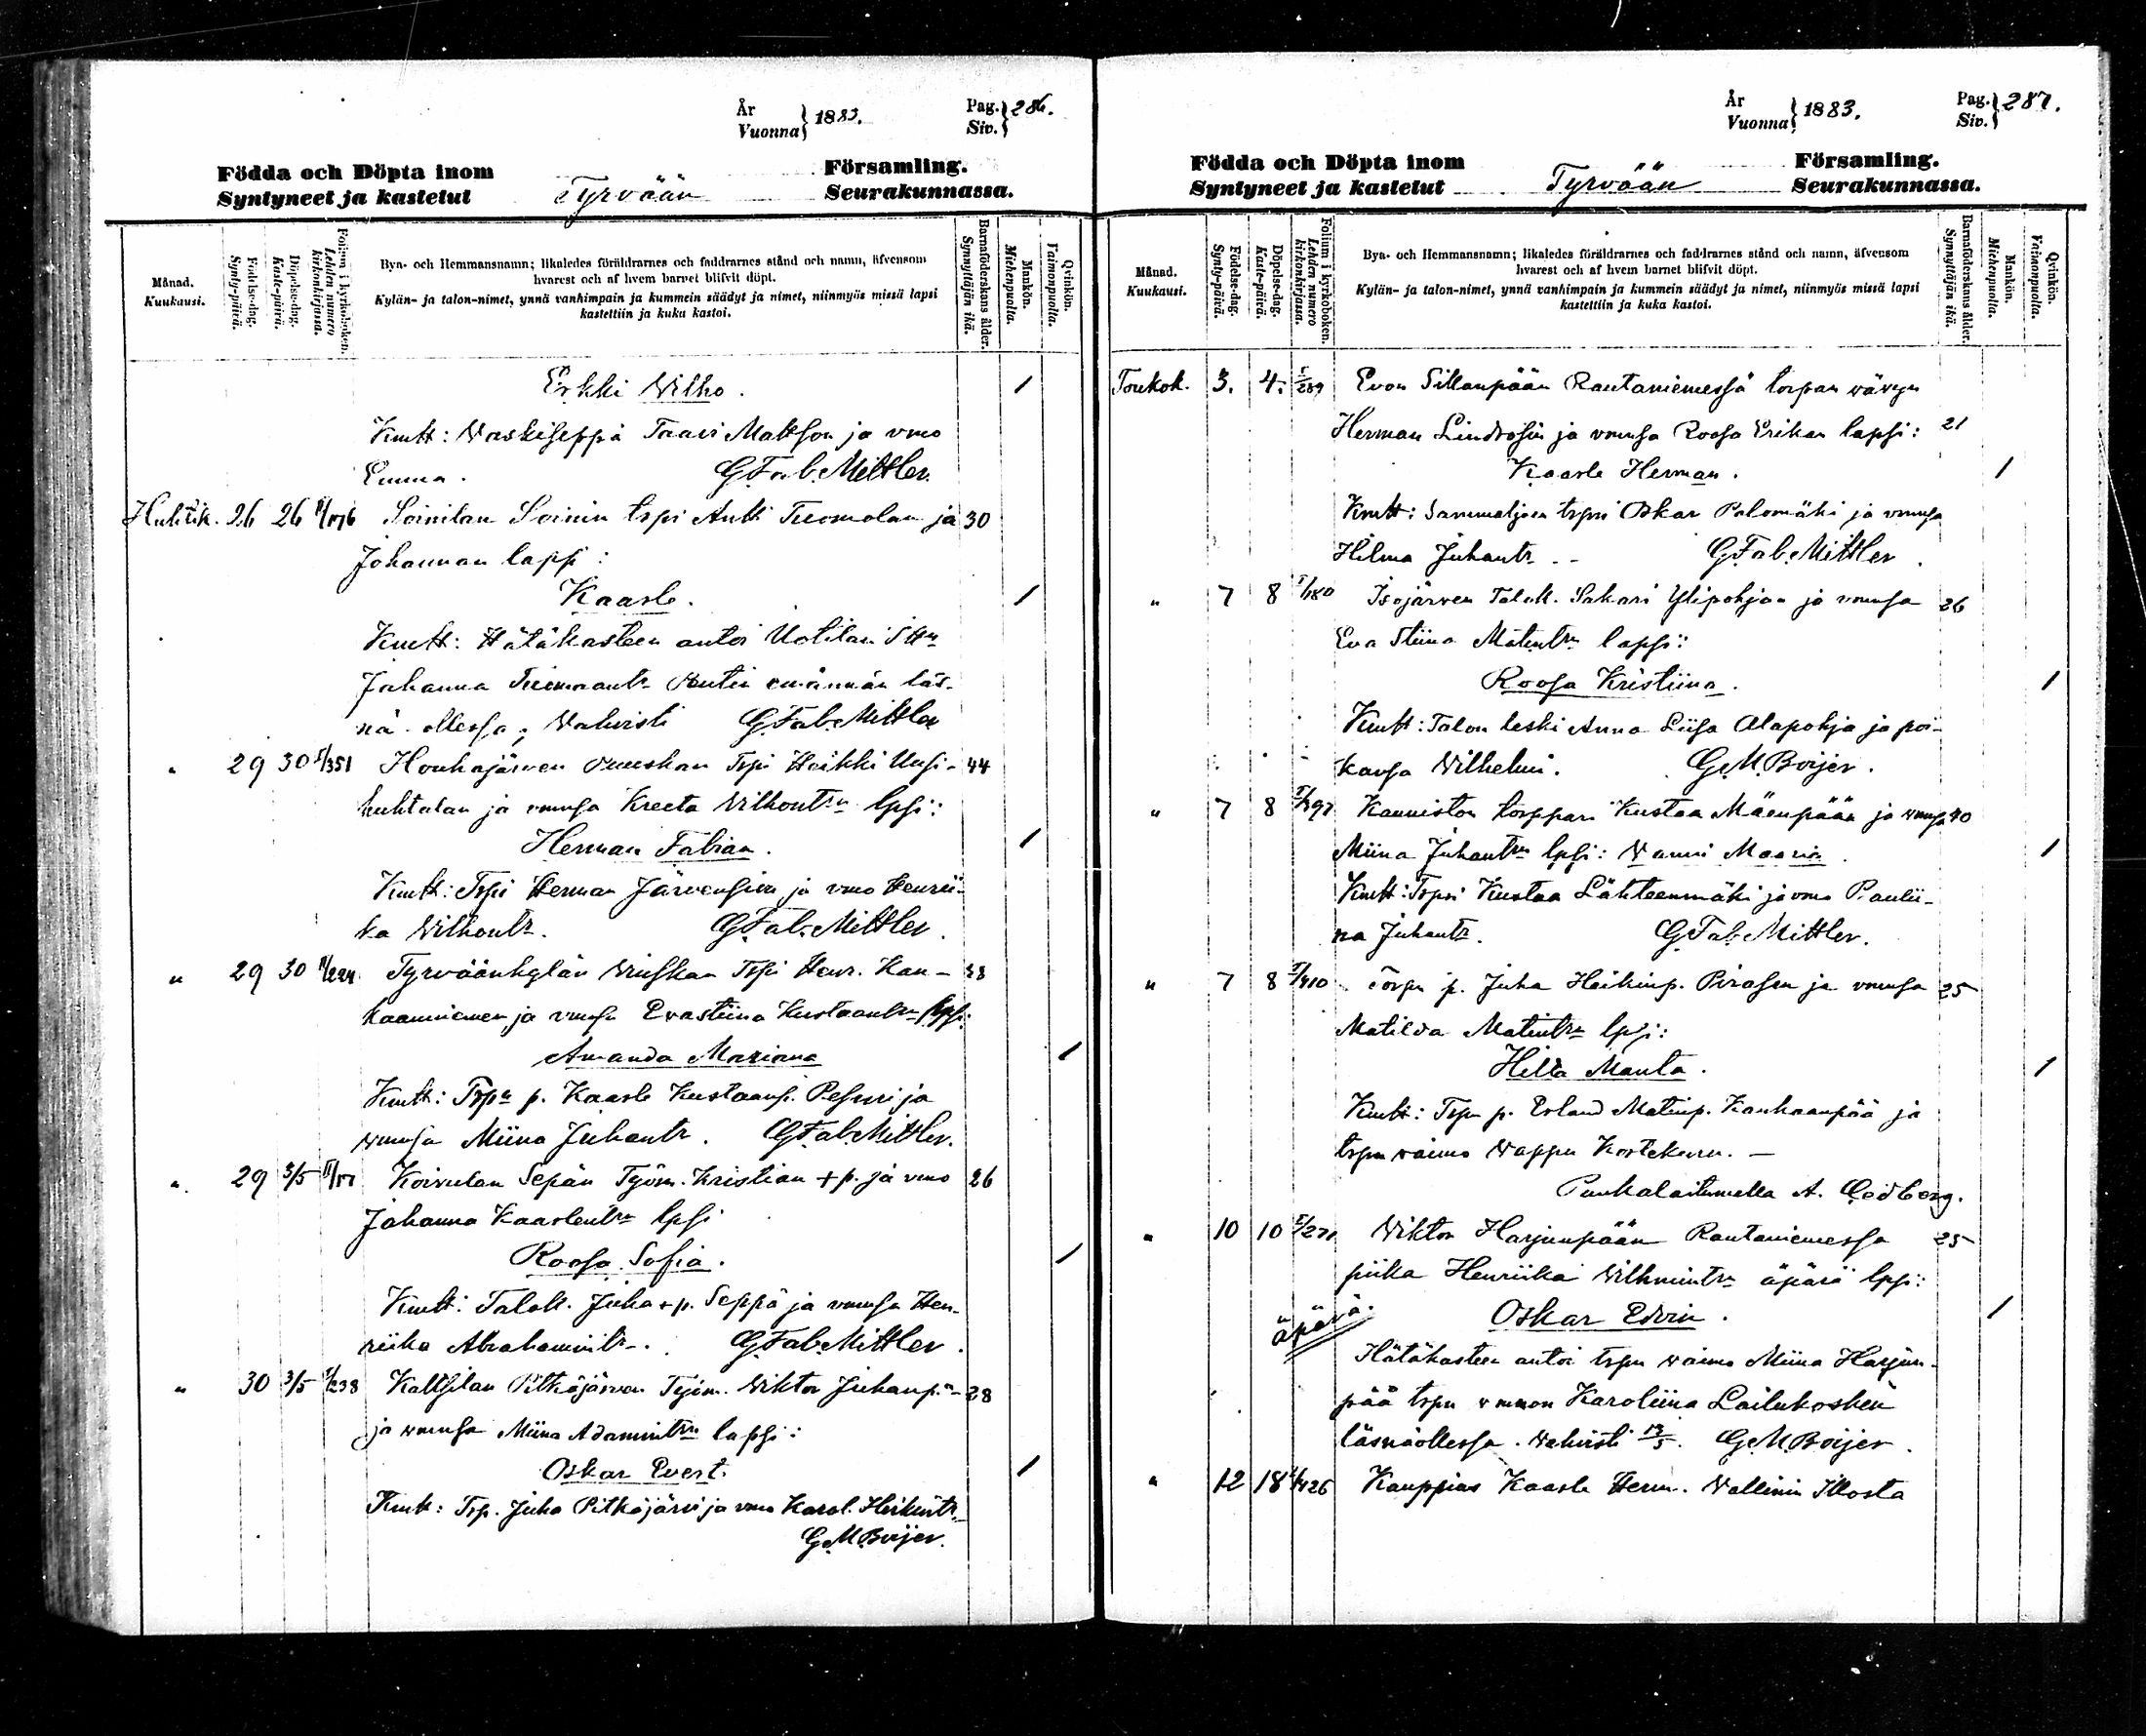 År
Vuonna } 1883.
Pag.
Siv. } 286.
Födda och Döpta inom
Syntyneet ja kastetut
Tyrvään
Församling.
Seurakunnassa.
Månad.
Kuukausi.
Födelse-dag.
Synty-päivä.
Döpelse-dag.
Kaste-päivä.
Folium i kyrkoboken.
Lehden numero kirkonkirjassa.
Bya- och Hemmansnamn; likaledes föräldrarnes och faddrarnes stånd och namn, äfvensom
hvarest och af hvem barnet blifvit döpt.
Kylän- ja talon-nimet, ynnä vanhimpain ja kummein säädyt ja nimet, niinmyös missä lapsi
kastettiin ja kuka kastoi.
Barnaföderskans ålder.
Synnyttäjän ikä.
Mankön.
Miehenpuolta.
Qvinkön.
Vaimonpuolta.
Erkki Wilho. 1
Kmtt: Waskiseppä Taavi Mattson ja vmo
Emma. G.Fab.Mittler.
Huhtik. 26 26 Soinilan Soinin trpi Antti Tuomolan ja 30
Johannan lapsi:
Kaarle. 1
Kmtt: Hätäkasteen antoi Uotilan
Johanna Tuomaantr emännän läs-
nä ollessa; Wahvisti G.Fab.Mittler
" 29 30 I/351 Houhajärven Trpi Heikki Uusi- 44
huhtalan ja vmnsa Kreeta Wilhontrn lpsi:
Herman Fabian. 1
Kmtt: Trpi Herman Järvensivu ja vmo Henrii-
ka Wilhontr. G.Fab.Mittler.
" 29 30 Tyrväänkylän Trpi Henr. Kan- 38
kaanniemen ja vmnsa Evastiina Kustaantrn lpsi:
Amanda Mariana 1
Kmtt: Trpn p. Kaarle Kustaanp. Pesuri ja
vmnsa Miina Juhantr. G.Fab.Mittler.
" 29 3/5 Koivulan Sepän Työm. Kristian + p. ja vmo 26
Johanna Kaarlentrn lpsi
Roosa Sofia. 1
Kmtt: Talok. Juha + p. Seppä ja vmnsa Hen-
riika Abrahamintr. G.Fab.Mittler.
" 30 3/5 I/238 Kaltsilan Pitkäjärven Työm. Wiktor Juhanp. 28
ja vmnsa Miina Adamintrn lapsi:
Oskar Evert. 1
Kmtt: Trp. Juha Pitkäjärvi ja vmo Karol. Heikintr.
G.M.Boijer.
År
Vuonna } 1883.
Pag.
Siv. } 287.
Födda och Döpta inom
Syntyneet ja kastetut
Tyrvään
Församling.
Seurakunnassa.
Månad.
Kuukausi.
Födelse-dag.
Synty-päivä.
Döpelse-dag.
Kaste-päivä.
Folium i kyrkoboken.
Lehden numero kirkonkirjassa.
Bya- och Hemmansnamn; likaledes föräldrarnes och faddrarnes stånd och namn, äfvensom
hvarest och af hvem barnet blifvit döpt.
Kylän- ja talon-nimet, ynnä vanhimpain ja kummein säädyt ja nimet, niinmyös missä lapsi
kastettiin ja kuka kastoi.
Barnaföderskans ålder.
Synnyttäjän ikä.
Mankön.
Miehenpuolta.
Qvinkön.
Vaimonpuolta.
Toukok. 3. 4. I/289 Evon Sillanpään Rautaniemessä torpan vävyn
Herman Lindrosin ja vmnsa Roosa Erikan lapsi: 21
Kaarle Herman. 1
Kmtt: Sammaljoen trpri Oskar Palomäki ja vmnsa
Hilma Juhantr. G.Fab.Mittler.
" 7 8 I/180 Isojärven Talok. Sakari Ylipohjan ja vmnsa 26
Eva Stiina Matintrn lapsi:
Roosa Kristiina. 1
Kmtt: Talon leski Anna Liisa Alapohja ja poi-
kansa Wilhelmi. G.M.Boijer.
" 7 8 Kanniston torppari Kustaa Mäenpään ja vmnsa 40
Miina Juhantrn lpsi: Wanni Maaria. 1
Kmtt: Trpri Kustaa Lähteenmäki ja vmo Paulii-
na Juhantr. G.Fab.Mittler.
" 7 8 I/410 Torpn p. Juha Heikinp. Pirasen ja vmnsa 25
Matilda Matintrn lpsi:
Hilda Manta. 1
Kmtt: Trpn p. Erland Matinp. Kankaanpää ja
trpn vaimo Wappu Kortekuru. —
Punkalaitumella A. Cedberg.
" 10 10 Wiktor Harjunpään Rautaniemessä 25
piika Henriika Wilhmintrn äpärä lpsi:
äpärä. Oskar Edvin. 1
Hätäkasteen antoi trpn vaimo Miina Harjun-
pää trpn vmnon Karoliina Lailukosken
läsnäollessa. Wahvisti 13/5. G.M.Boijer.
" 12 18 Kauppias Kaarle Herm. Wallinin Illosta